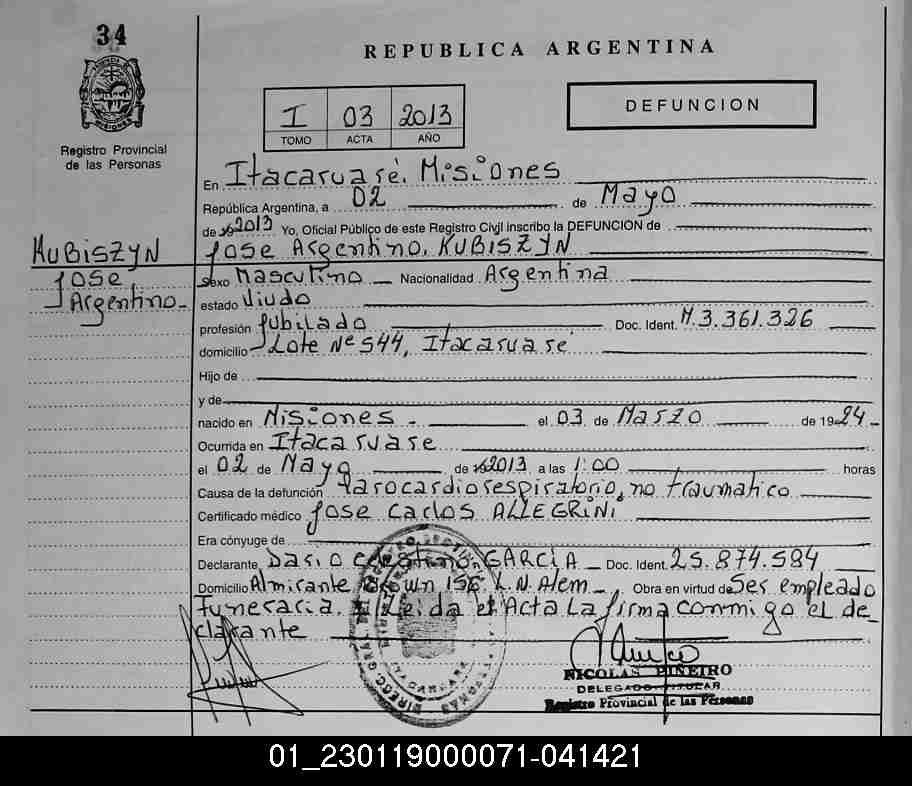 34
REPUBLICA ARGENTINA
I 03 2013
TOMO ACTA AÑO
DEFUNCION
Registro Provincial
de las Personas
En Itacaruaré. Misiones
República Argentina, a 02 de Mayo
de 2013 Yo, Oficial Público de este Registro Civil inscribo la DEFUNCION de
KUBISZYN
Jose
Argentino
Jose Argentino, KUBISZYN
Sexo Masculino Nacionalidad Argentina
estado Viudo
profesión Jubilado Doc. Ident. M.3.361.326
domicilio Lote Nº 544, Itacaruaré
Hijo de
y de
nacido en Misiones el 03 de Marzo de 1924
Ocurrida en Itacaruare
el 02 de Mayo de 2013 a las 1:00 horas
Causa de la defunción Parocardiorespiratorio, no traumatico
Certificado médico Jose Carlos ALLEGRINI
Era cónyuge de
Declarante, Dario GARCÍA Doc. Ident. 25.874.584
Domicilio Almirante 156 L.N.Alem Obra en virtud de Ser empleado
Funeraria. Leida el Acta La firma conmigo el de-
clarante
NICOLAS PIÑEIRO
DELEGADO TITULAR
Registro Provincial de las Personas
01_230119000071-041421